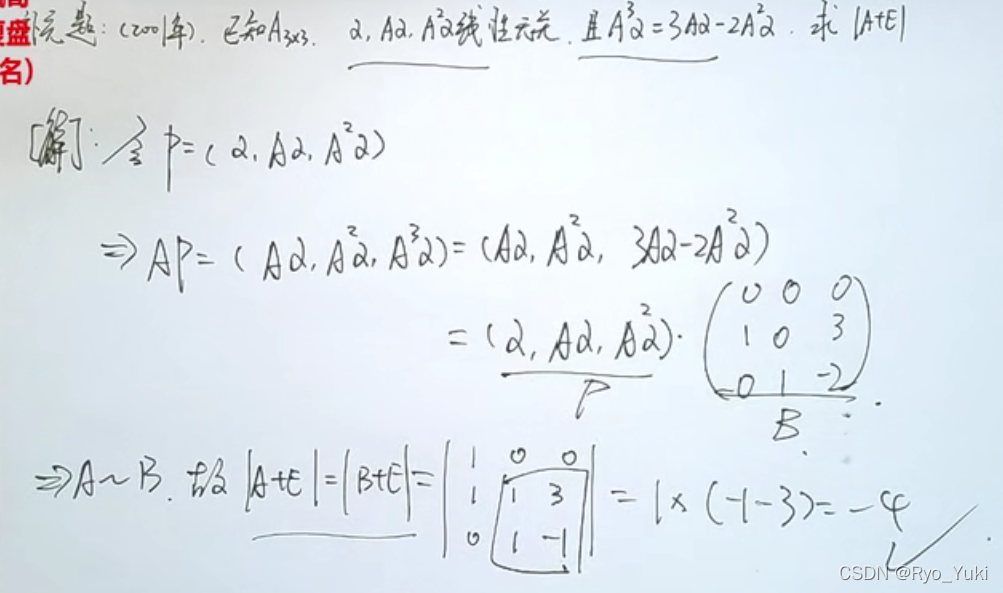 补充题:(2001年). 已知A₃ₓ₃. α, Aα, A²α线性无关. 且A³α=3Aα-2A²α. 求 |A+E|
盘
名)
[解]: 令 P=(α, Aα, A²α)
⇒ AP=(Aα, A²α, A³α)=(Aα, A²α, 3Aα-2A²α)
=(α, Aα, A²α)·
0 0 0
1 0 3
0 1 -2
P
B
⇒A~B. 故 |A+E|=|B+E|=
1 0 0
1 1 3
0 1 -1
=1×(-1-3)=-4 ✓
CSDN @Ryo_Yuki